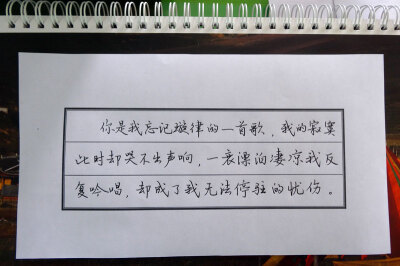 你是我忘记旋律的一首歌，我的寂寞
此时却哭不出声响，一衷漂泊凄凉我反
复吟唱，却成了我无法停驻的忧伤。